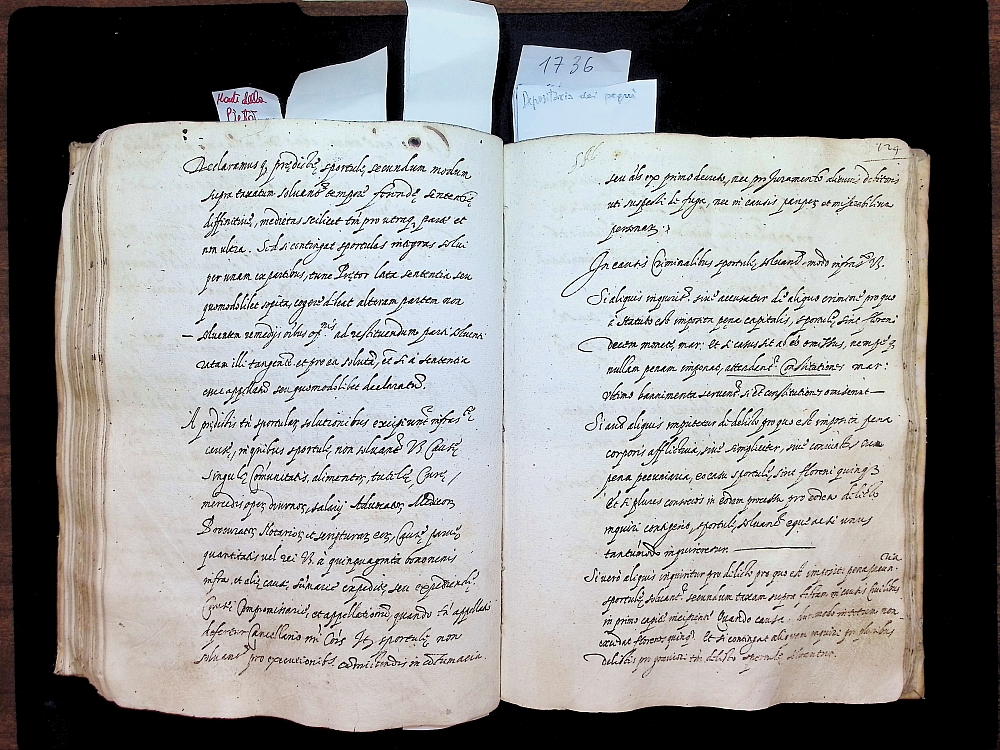 Monti della
Pietà
1736
Depositaria dei pegni
Declaramus q, prędictę sportulę secundum modum
supra taxatum solvant tempore sententię
diffinitivę, medietas scilicet tm pro utraq, parte et
non ultra. Sed si contingat sportulas integras solui
per unam ex partibus, tunc Prętor lata sententia seu
quomodolibet sopita, cogere debeat alteram partem non
solventem remedijs ad restituendum parti solventi
ratam illi tangentē et pro ea solutā, et si à sententia
esset appellatū seu quomodolibet declaratū.
A prędictis tn sportular solutionibus excipiunt infras
causę, in quibus sportulę non solvant Vz Causę
Singulę Comunitatis, alimentor, tutelę, Curę,
mercedis oper diurnor, salarij Advocator Medicor
Procurator Notarior et scripturar eor, Causę parvę
quantitatis vel rei Vz à quinquaginta bononenis
infra, et alię causę sumarie expedite, seu expediendę
Causę Compromissarię, et appellationū, quando tn appellat
defertur Cancellario Itę, sportulę non
solvant pro executionibus comittendis in contumacia
124
seu ex primo decreto, nec pro Juramento debitoris
uti suspecti de fuga, nec in causis pauper et miserabiliū
personar
In causis Criminalibus sportulę solvant modo infras Vz.
Si aliquis inquirit sive accusatur de aliquo crimine pro quo
à Statuto est imposita pęna capitalis, sportulę sint floreni
Decem monetę mar: Et si casus sit ab eo omissus, nempe q
nullam penam imponat, attendant Constitutiones mar:
ultimo bannimenta servent si et constitutiones omiserint
Si aut aliquis imputetur de delicto pro quo est imposita pena
corporis afflictiva, sive simpliciter, sive cum
pena pecuniaria, eo casu sportulę sint floreni quinq,
Et si plures consocios in eodem processu pro eodem delicto
inquiri contigerit, sportulę solvant eque ac si unus
tantumodo inquireretur
Si vero aliquis inquiritur pro delicto pro quo est imposita pena pecun
ciria
sportulę solvant secundum taxam supra in causis Civilibus
in primo capite incipient Quando causa, dumodo non
excedat florenos quinq, Et si contingat aliquem inquiri pro pluribus
Delictis pro graviori tm delicto sportulę solventur.